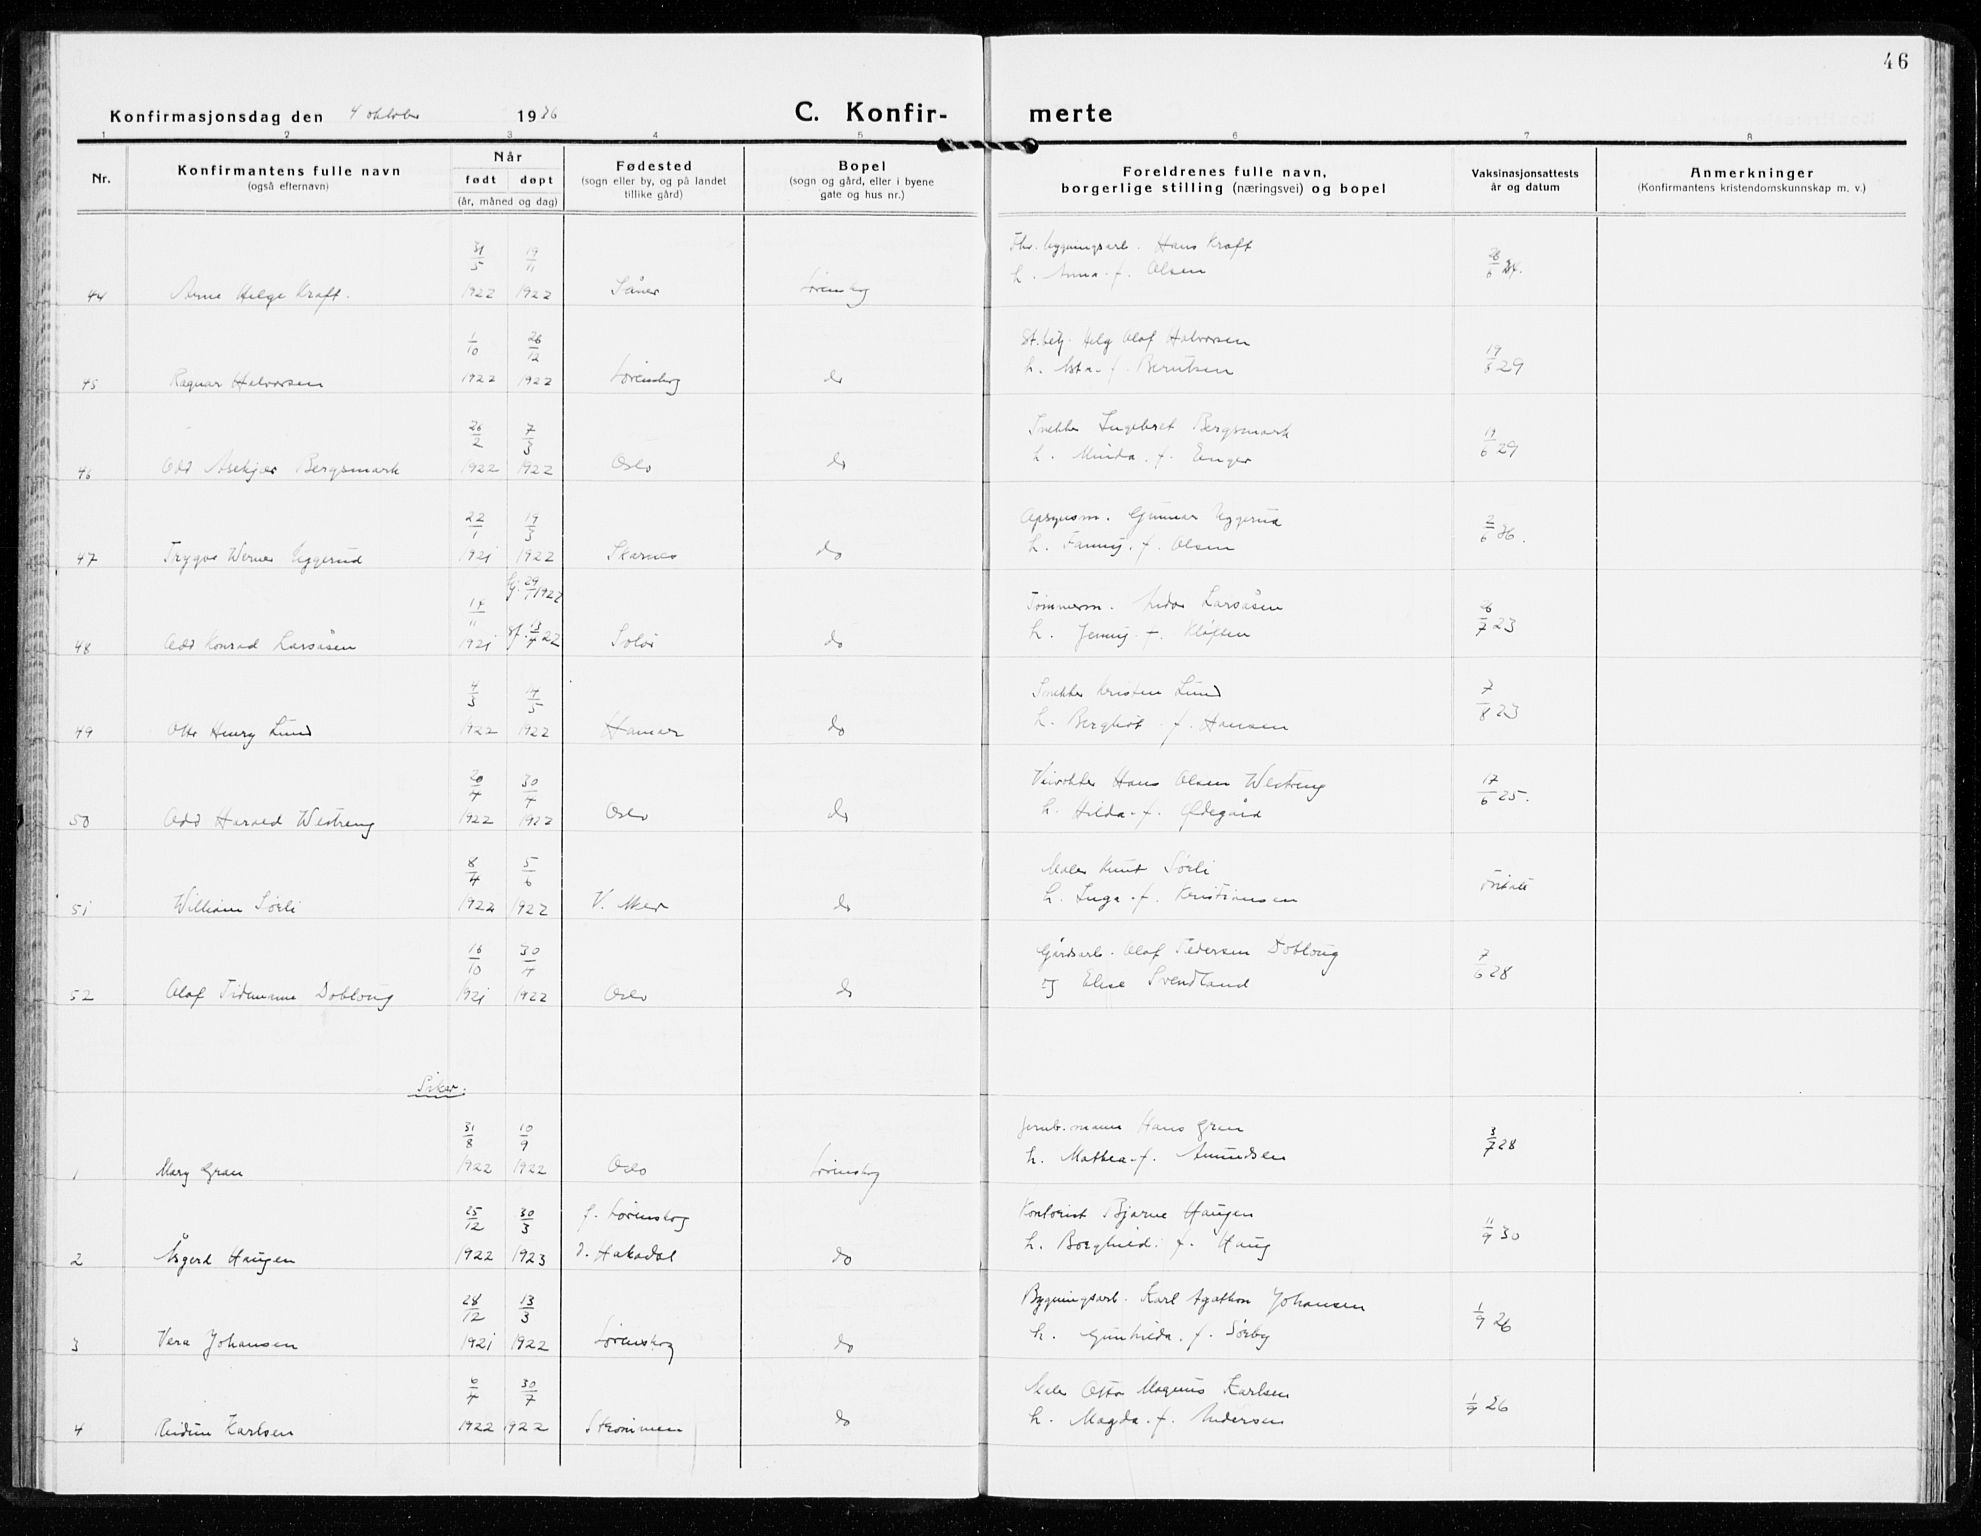 46
Konfirmasjonsdag den 4 oktober 1936
C. Konfir-merte
1 2 3 4 5 6 7 8
Nr.
Konfirmantens fulle navn
(også efternavn)
Når
født døpt
(år, måned og dag)
Fødested
(sogn eller by, og på landet
tillike gård)
Bopel
(sogn og gård, eller i byene
gate og hus nr.)
Foreldrenes fulle navn,
borgerlige stilling (næringsvei) og bopel
Vaksinasjonsattests
år og datum
Anmerkninger
(Konfirmantens kristendomskunnskap m. v.)
31/5 19/11 Hans Kraft
44 Arne Helge Kraft. 1922 1922 Såner Lørenskog h. Anna f. Olsen
1/10 26/12 Helg Olaf Halvorsen
45 Ragnar Halvorsen 1922 1922 Lørenskog do h. Asta f. Berntsen 19/6 29
26/2 7/3 Snekker Ingebret Bergsmark
46 Odd Asekjær Bergsmark 1922 1922 Oslo do h. Minda f. Enger 19/6 29
22/1 19/3 Opsynsm. Gunnar Uggerud
47 Trygve Werner Uggerud 1921 1922 Skarnes do h. Fanny f. Olsen 2/6 36.
17/11 29/1 1922 Tømmerm. Larsåsen
48 Odd Konrad Larsåsen 1921 13/4 22 Solør do h. Jenny f. Kløften 26/7 23
4/3 14/5 Snekker Kristen Lund
49 Otto Henry Lund 1922 1922 Hamar do h. Bergliot f. Hansen 7/8 23
20/4 30/4 Veivokter Hans Olsen Westreng
50 Odd Harald Westreng 1922 1922 Oslo do h. Hilda f. Ødegård 17/6 25.
8/4 5/6 Maler Knut Sørli
51 William Sørli 1922 1922 V. Aker do h. Inga f. Kristiansen Fritatt
16/10 30/4 Gårdsarb. Olaf Pedersen Dobloug
52 Olaf Tidemann Dobloug 1921 1922 Oslo do og Elise Svendland 7/6 28
Piker.
31/8 10/9 Jernb.mann Hans Gran
1 Mary Gran 1922 1922 Oslo Lørenskog h. Mathea f. Amundsen 3/7 28
25/12 30/3 f. Lørenskog Kontorist Bjarne Haugen
2 Åsgerd Haugen 1922 1923 d. Hakadal do h. Borghild f. Haug 11/9 30
28/12 13/3 Bygningsarb. Karl Agathon Johansen
3 Vera Johansen 1921 1922 Lørenskog do h. Gunhilda f. Sørby 1/9 26
6/4 30/7 Maler Otto Magnus Karlsen
4 Reidun Karlsen 1922 1922 Strømmen do h. Magda f. Andersen 1/9 26